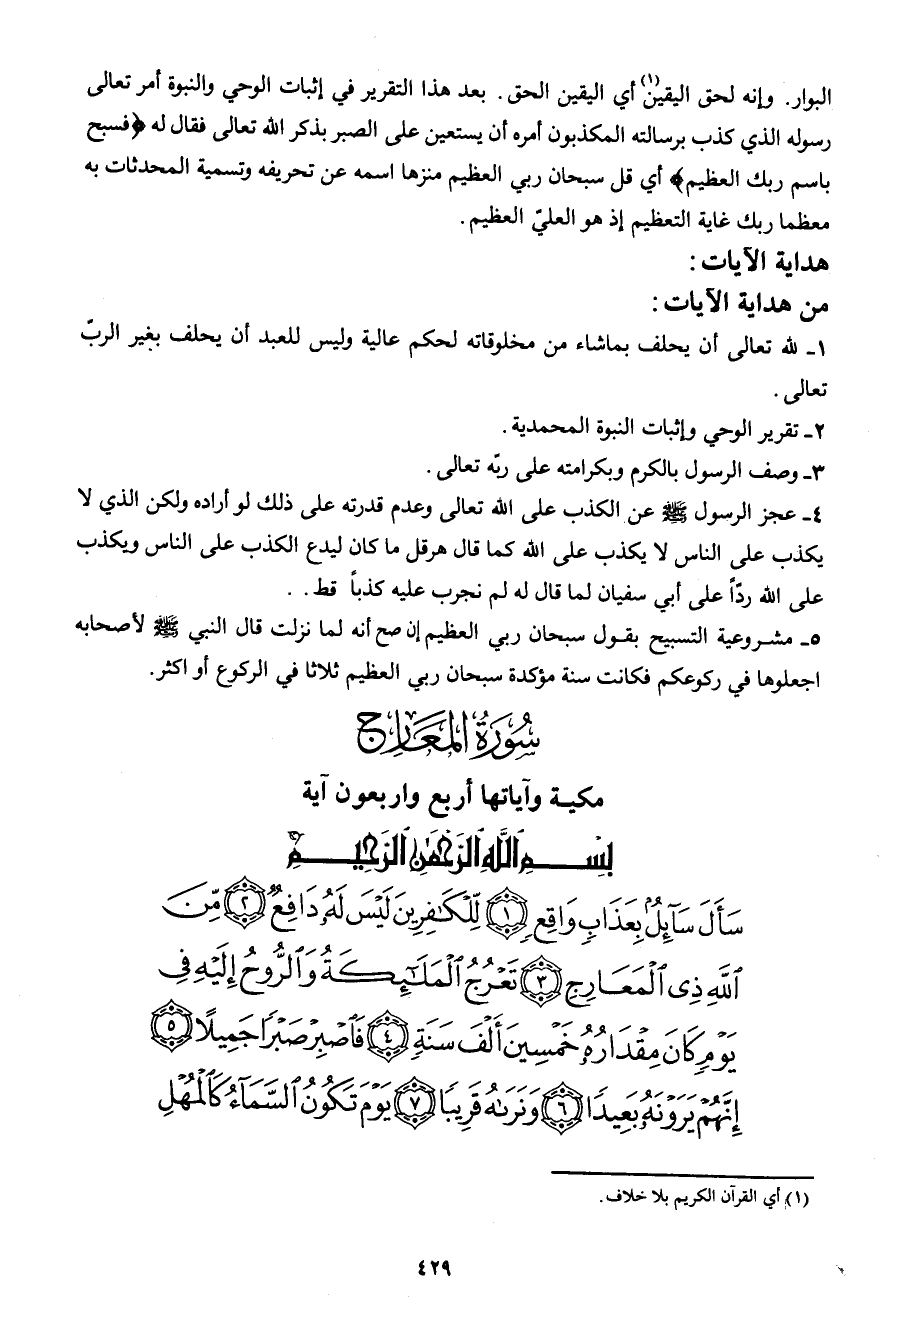 البوار. وإنه لحق اليقين(١) أي اليقين الحق. بعد هذا التقرير في إثبات الوحي والنبوة أمر تعالى
رسوله الذي كذب برسالته المكذبون أمره أن يستعين على الصبر بذكر الله تعالى فقال له ﴿فسبح
باسم ربك العظيم﴾ أي قل سبحان ربي العظيم منزها اسمه عن تحريفه وتسمية المحدثات به
معظما ربك غاية التعظيم إذ هو العليّ العظيم.
هداية الآيات:
من هداية الآيات:
١ـ لله تعالى أن يحلف بماشاء من مخلوقاته لحكم عالية وليس للعبد أن يحلف بغير الربّ
تعالى.
٢ـ تقرير الوحي وإثبات النبوة المحمدية.
٣ـ وصف الرسول بالكرم وبكرامته على ربّه تعالى.
٤ـ عجز الرسول ﷺ عن الكذب على الله تعالى وعدم قدرته على ذلك لو أراده ولكن الذي لا
يكذب على الناس لا يكذب على الله كما قال هرقل ما كان ليدع الكذب على الناس ويكذب
على الله ردّاً على أبي سفيان لما قال له لم نجرب عليه كذباً قط. .
٥ـ مشروعية التسبيح بقول سبحان ربي العظيم إن صح أنه لما نزلت قال النبي ﷺ لأصحابه
اجعلوها في ركوعكم فكانت سنة مؤكدة سبحان ربي العظيم ثلاثا في الركوع أو اكثر.
سُورَةُ المَعَارِجِ
مكية وآياتها أربع واربعون آية
بِسْمِ اللَّهِ الرَّحْمَٰنِ الرَّحِيمِ
سَأَلَ سَآئِلٌۢ بِعَذَابٍ وَاقِعٍ ١ لِّلْكَٰفِرِينَ لَيْسَ لَهُۥ دَافِعٌ ٢ مِّنَ
ٱللَّهِ ذِى ٱلْمَعَارِجِ ٣ تَعْرُجُ ٱلْمَلَٰٓئِكَةُ وَٱلرُّوحُ إِلَيْهِ فِى
يَوْمٍ كَانَ مِقْدَارُهُۥ خَمْسِينَ أَلْفَ سَنَةٍ ٤ فَٱصْبِرْ صَبْرًا جَمِيلًا ٥
إِنَّهُمْ يَرَوْنَهُۥ بَعِيدًا ٦ وَنَرَىٰهُ قَرِيبًا ٧ يَوْمَ تَكُونُ ٱلسَّمَآءُ كَٱلْمُهْلِ
(١) أي القرآن الكريم بلا خلاف.
٤٢٩